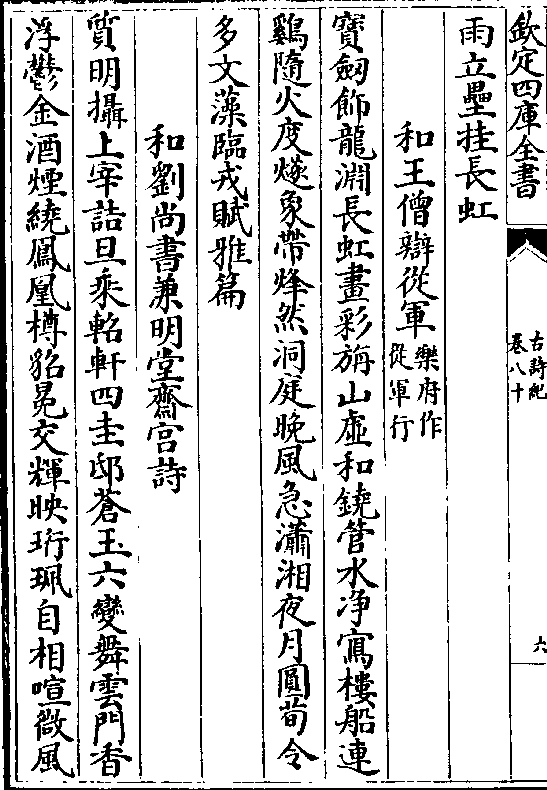 欽定四庫全書
古詩紀
卷八十
六
雨立壘挂長虹
和王僧辯從軍樂府作從軍行
寶劔飾龍淵長虹畫彩斾山虛和鐃管水浄寫樓船連
鷄隨火度燧象帶烽然洞庭晚風急瀟湘夜月圓荀令
多文藻臨戎賦雅篇
和劉尚書兼明堂齋宫詩
質明攝上宰詰旦乘軺軒四圭邸蒼玉六變舞雲門香
浮鬱金酒煙繞鳳凰樽貂冕交輝映珩珮自相喧微風